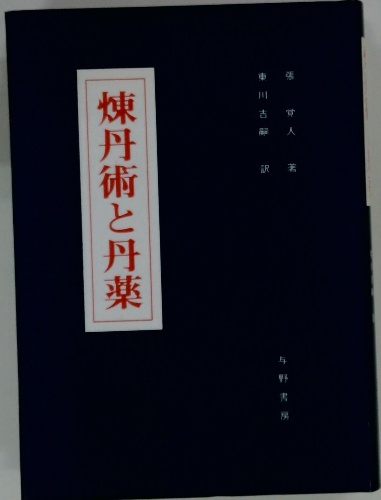 張覚人 著
東川吉嗣 訳
煉丹術と丹薬
与野書房